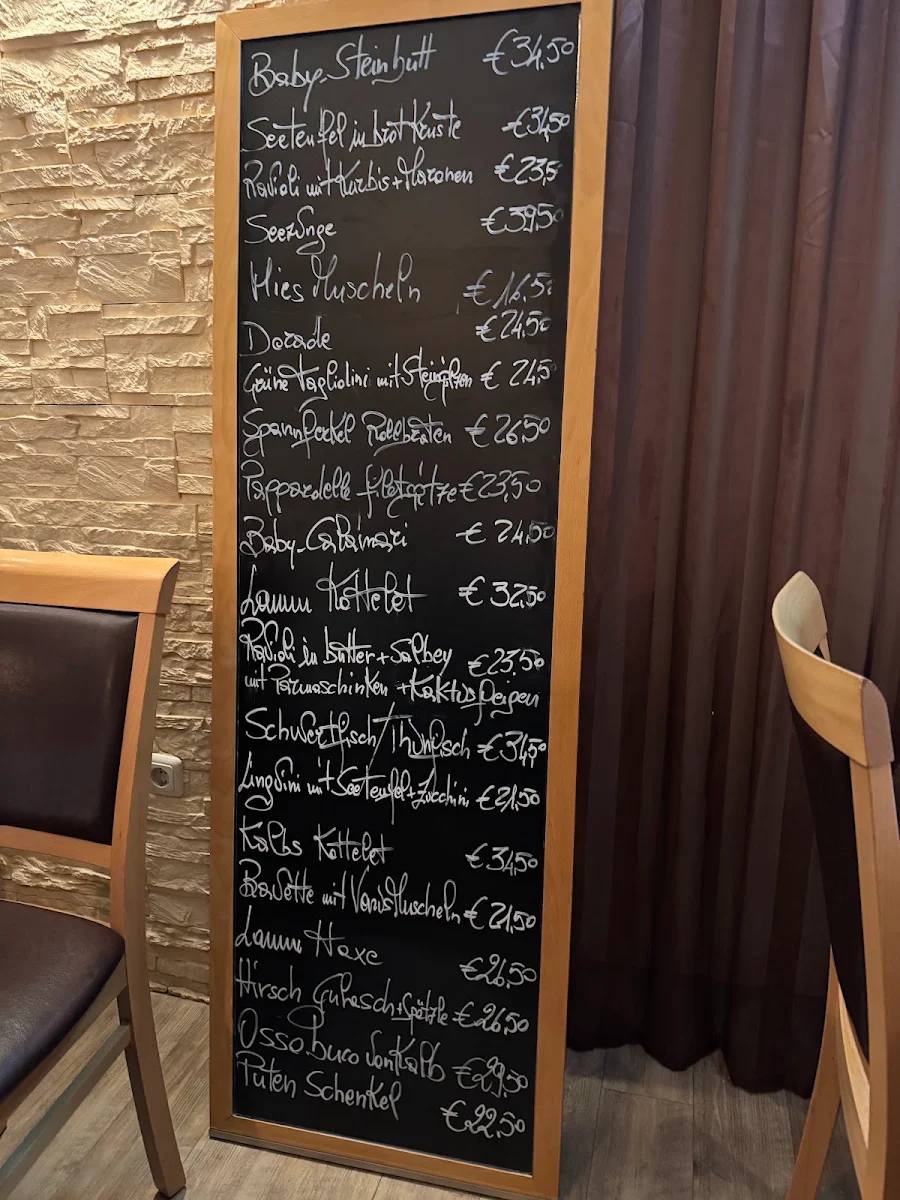 Baby-Steinbutt €34,50
Seeteufel in brot Kruste €34,50
Ravioli mit Kürbis + Maronen €23,5
Seezünge €39,50
Mies Muscheln €16,50
Dorade €24,50
Grüne Tagliolini mit Steinpilzen €24,5
Spannferkel Rollbraten €26,50
Pappardelle filetspitze €23,50
Baby-Calamari €24,50
Lamm Kottelet €32,50
Ravioli in butter + Salbey €23,50
mit Parmaschinken + Kaktusfeigen
Schwertfisch/Thunfisch €34,50
Linguini mit Seeteufel + Zucchini €21,50
Kalbs Kottelet €34,50
Bavette mit Venus Muscheln €21,50
Lamm Haxe €26,50
Hirsch Gulasch + Spätzle €26,50
Ossobuco von Kalb €29,50
Puten Schenkel €22,50